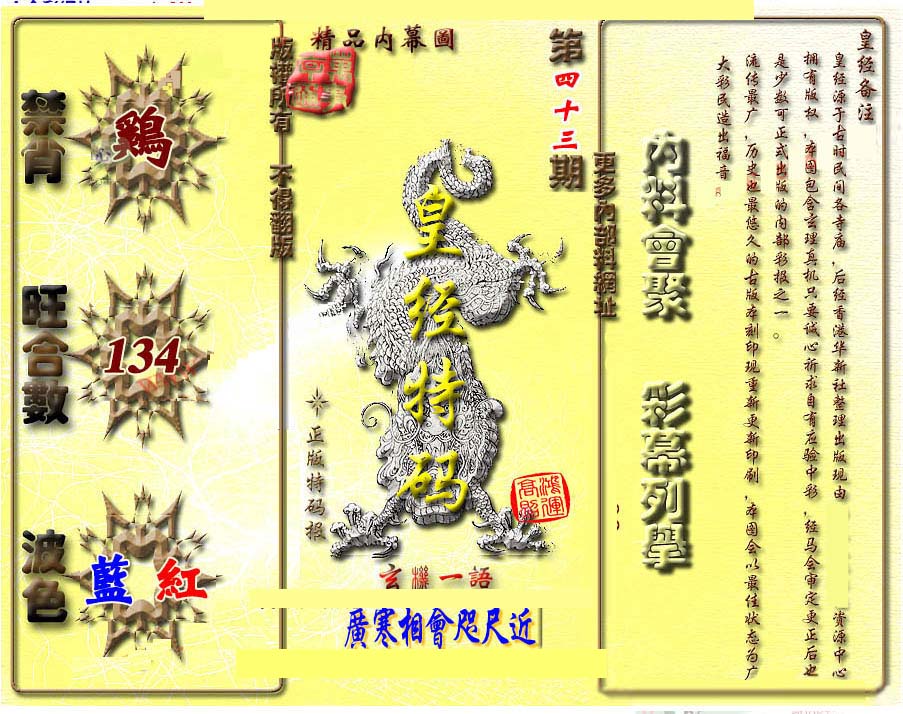 皇经备注
皇经源于古时民间各寺庙，后经香港华新社整理出版现由 资源中心
拥有版权，本图包含玄理真机只要诚心祈求自有应验中彩，经马会审定更正后也
是少数可正式出版的内部彩报之一。
流传最广，历史也最悠久的古版本刻印现重新更新印刷，本图会以最佳状态为广
大彩民造出福音
內料會聚
彩幕列舉
更多內部料網址
第四十三期
精品内幕圖
皇经特码
鴻運
高照
正版特码报
玄機一語
廣寒相會咫尺近
版權所有 不得翻版
禁肖
鷄
旺合數
134
波色
藍 紅